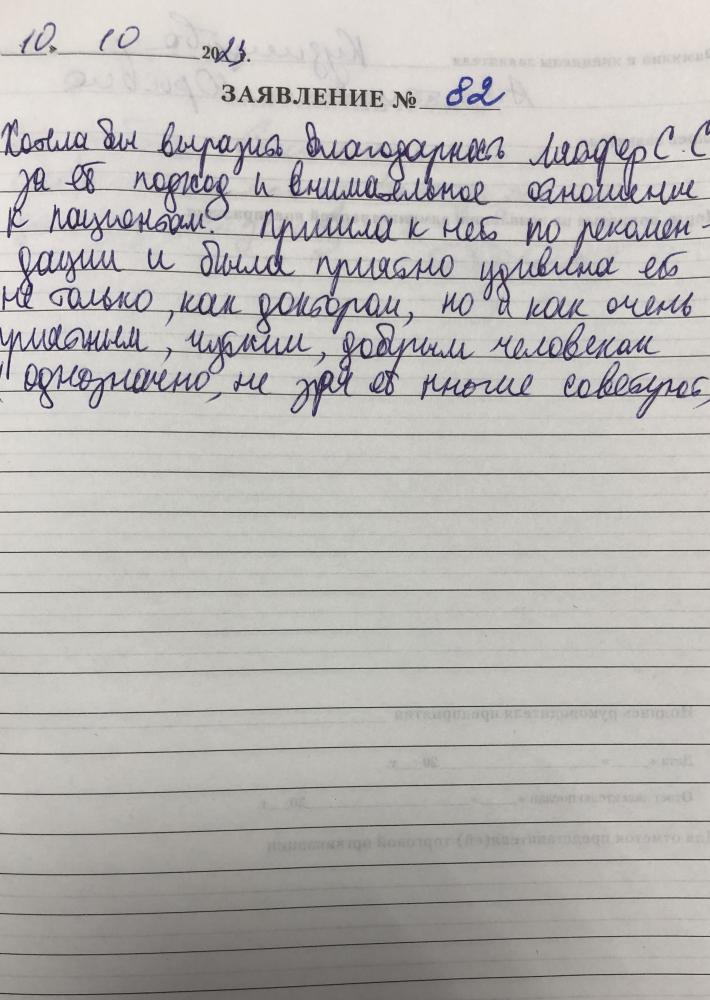 10. 10 2023.
ЗАЯВЛЕНИЕ № 82
Хотела бы выразить благодарность С. С
за её подход и внимательное отношение
к пациентам. Пришла к ней по рекомен-
дации и была приятно удивлена её
не только, как доктором, но и как очень
приятным, чутким, добрым человеком
однозначно, не зря её многие советуют,
Подпись руководителя предприятия